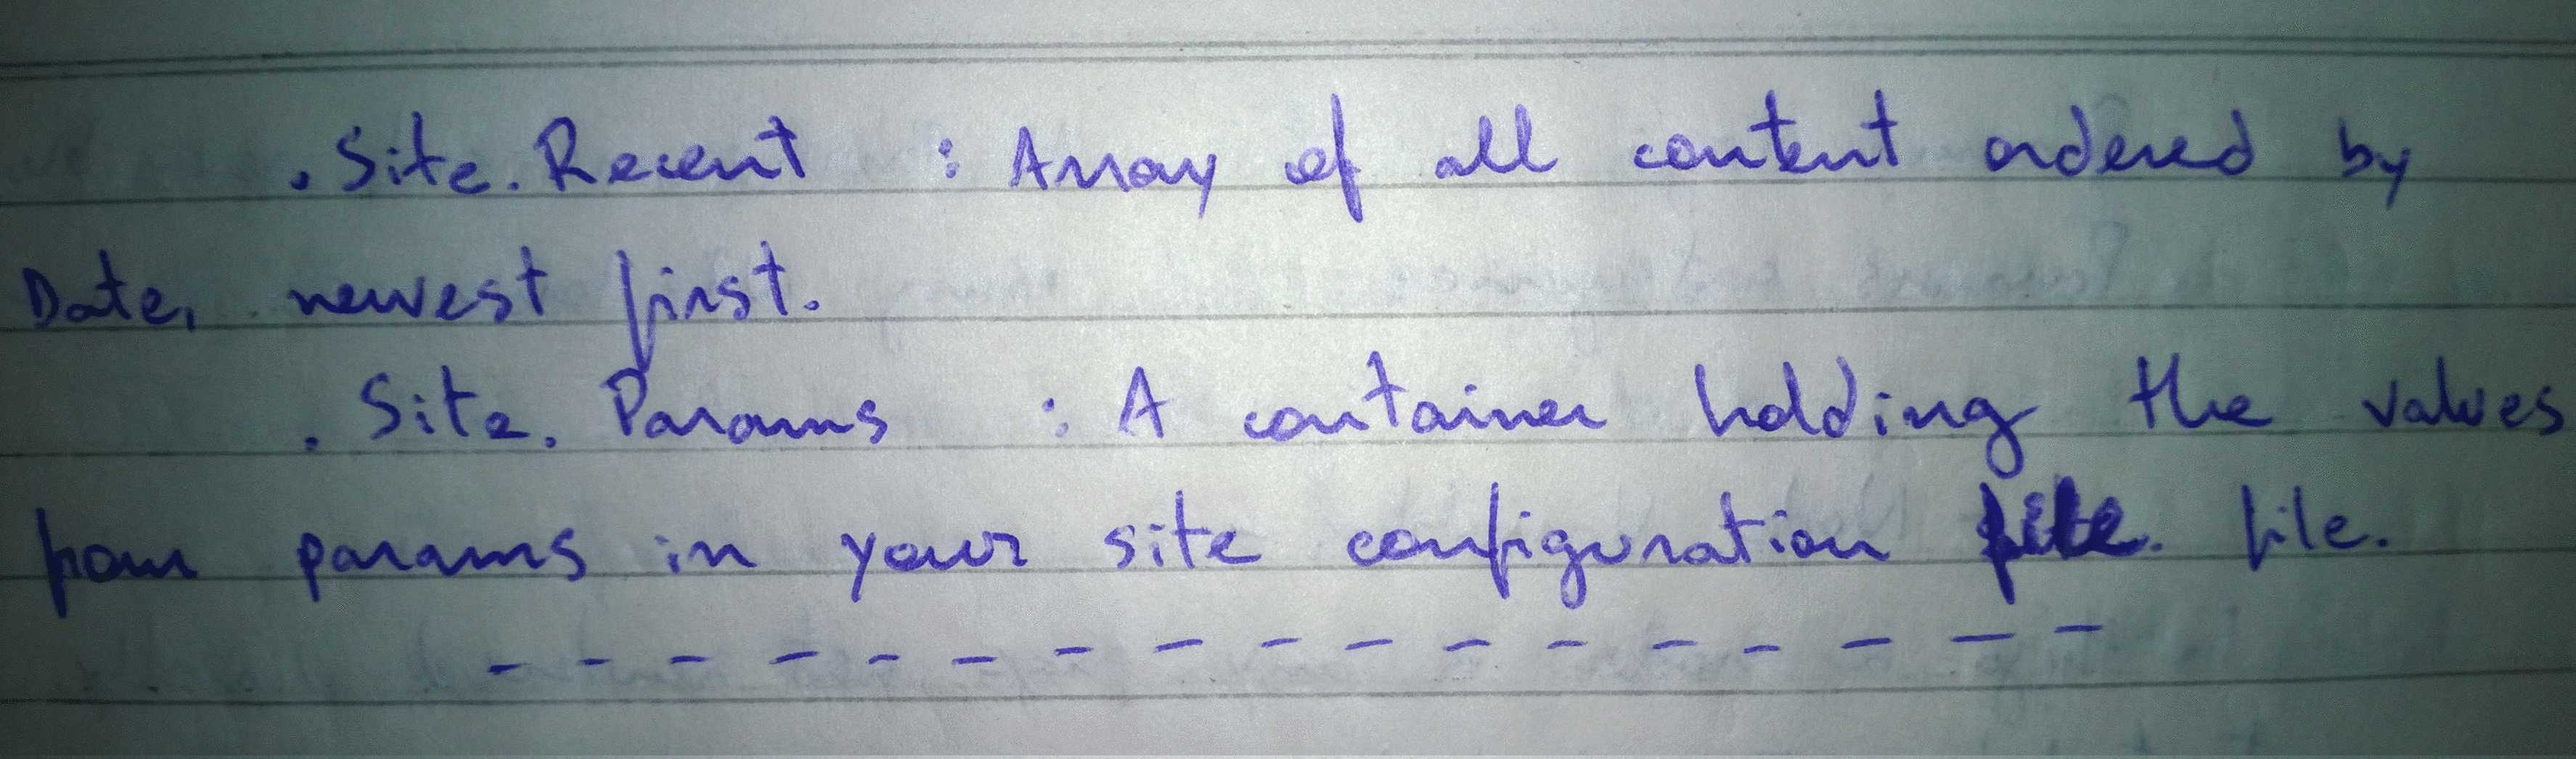 .Site.Recent : Array of all content ordered by
Date, newest first.
.Site.Params : A container holding the values
from params in your site configuration file. file.
- - - - - - - - - - - - - - - - - -